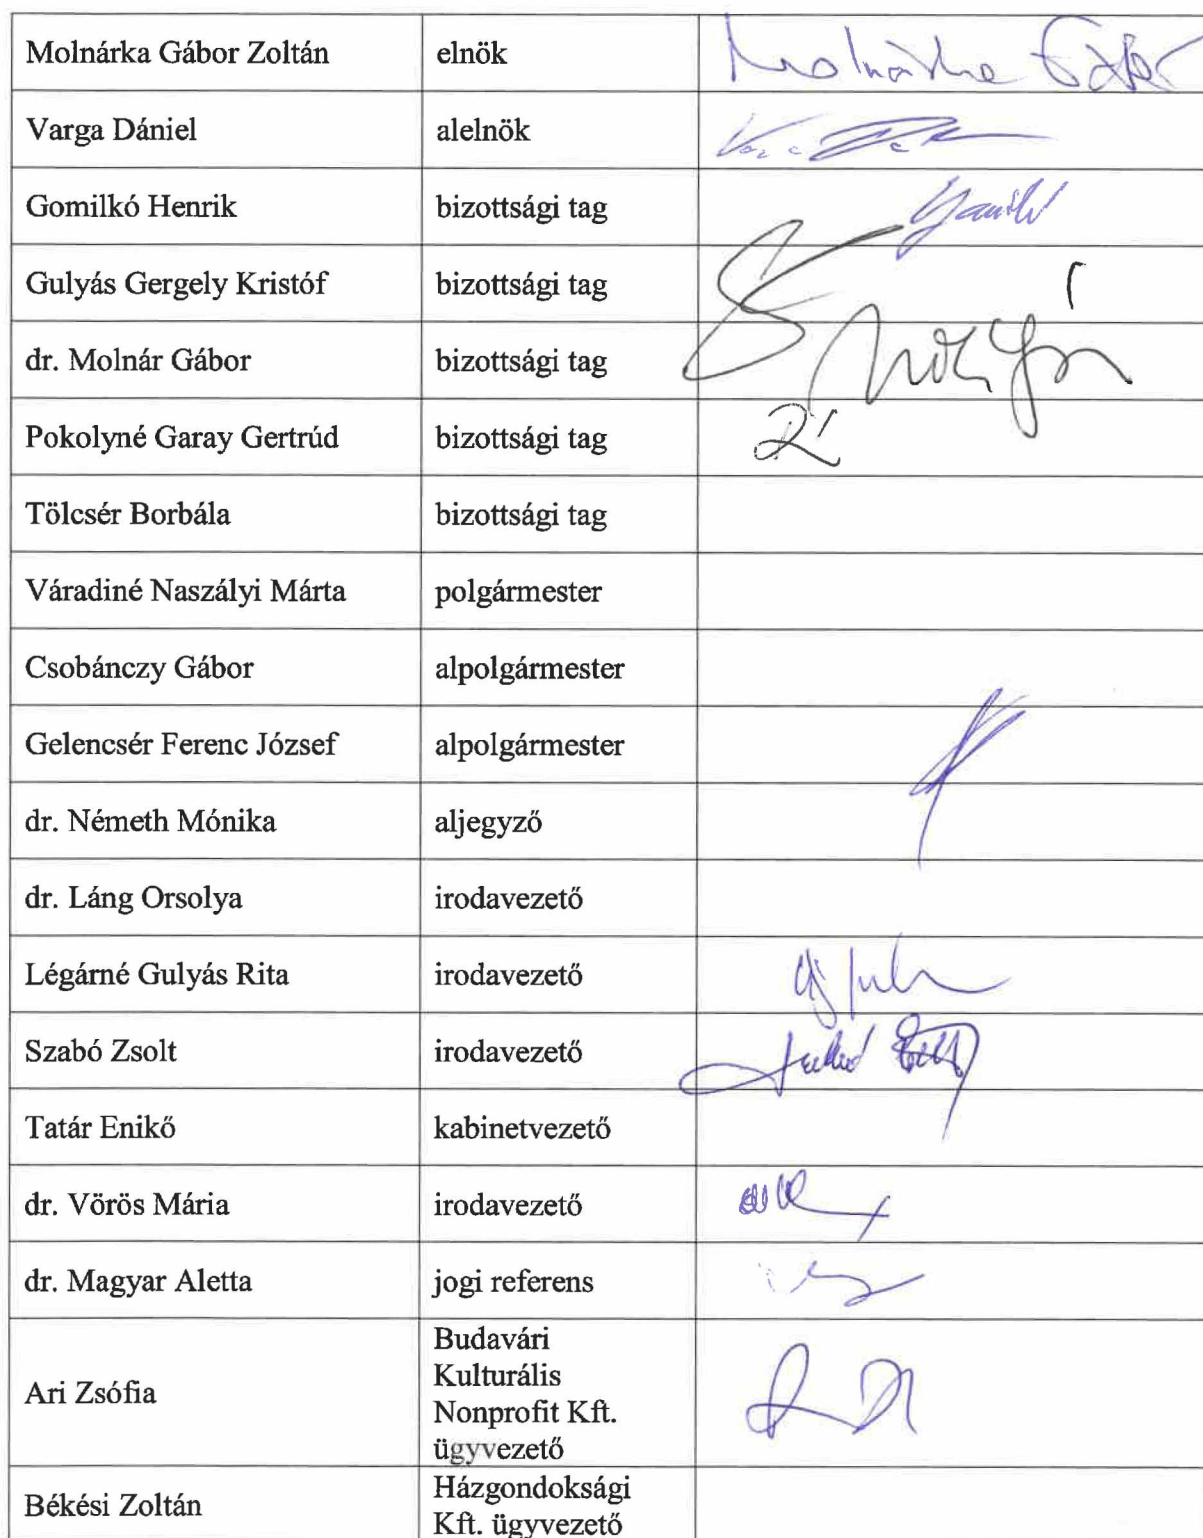 Molnárka Gábor Zoltán elnök Molnárka Gábor
Varga Dániel alelnök
Gomilkó Henrik bizottsági tag
Gulyás Gergely Kristóf bizottsági tag
dr. Molnár Gábor bizottsági tag
Pokolyné Garay Gertrúd bizottsági tag
Tölcsér Borbála bizottsági tag
Váradiné Naszályi Márta polgármester
Csobánczy Gábor alpolgármester
Gelencsér Ferenc József alpolgármester
dr. Németh Mónika aljegyző
dr. Láng Orsolya irodavezető
Légárné Gulyás Rita irodavezető
Szabó Zsolt irodavezető
Tatár Enikő kabinetvezető
dr. Vörös Mária irodavezető
dr. Magyar Aletta jogi referens
Ari Zsófia
Budavári
Kulturális
Nonprofit Kft.
ügyvezető
Békési Zoltán
Házgondoksági
Kft. ügyvezető